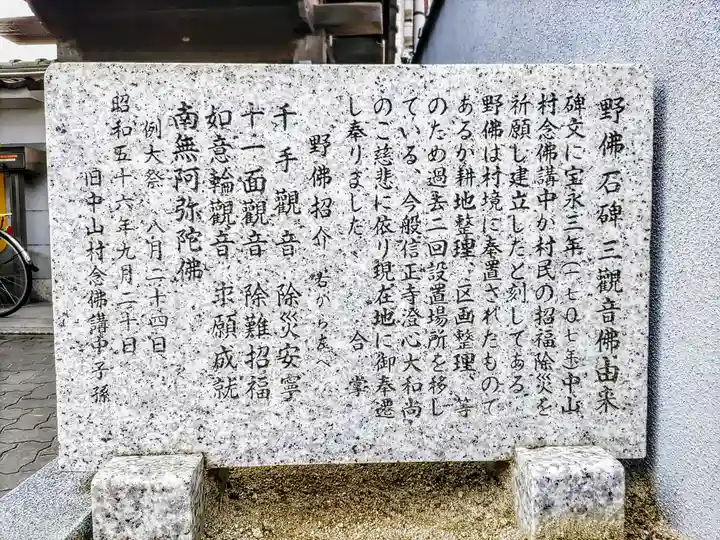 野佛石碑三觀音佛由来
碑文に宝永三年(一七〇七年)中山
村念佛講中が村民の招福除災を
祈願し建立したと刻してある。
野佛は村境に奉置されたもので
あるが耕地整理、区画整理、等
のため過去二回設置場所を移し
ている、今般信正寺澄心大和尚
のご慈悲に依り現在地に御奉遷
し奉りました、 合掌
野佛招介 右から左へ
千手觀音 除災安寧
十一面觀音 除難招福
如意輪觀音 求願成就
南無阿弥陀佛
例大祭 八月二十四日
昭和五十六年九月二十日
旧中山村念佛講中子孫